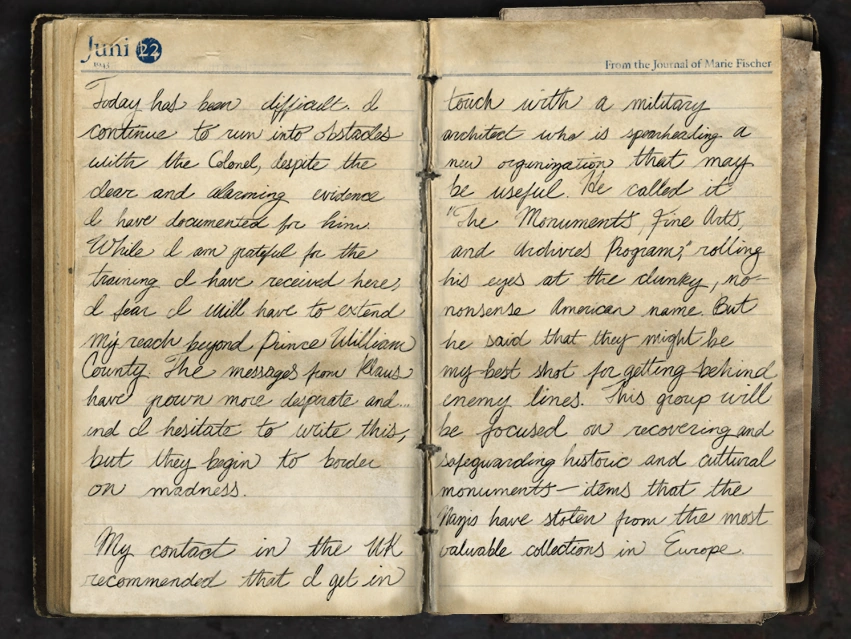 Juni 22
1943
Today has been difficult. I
continue to run into obstacles
with the Colonel, despite the
clear and alarming evidence
I have documented for him.
While I am grateful for the
training I have received here,
I fear I will have to extend
my reach beyond Prince William
County. The messages from Klaus
have grown more desperate and...
and I hesitate to write this,
but they begin to border
on madness.
My contact in the UK
recommended that I get in
From the Journal of Marie Fischer
touch with a military
architect who is spearheading a
new organization that may
be useful. He called it
"The Monuments, Fine Arts,
and Archives Program," rolling
his eyes at the clunky, no-
nonsense American name. But
he said that they might be
my best shot for getting behind
enemy lines. This group will
be focused on recovering and
safeguarding historic and cultural
monuments—items that the
Nazis have stolen from the most
valuable collections in Europe.